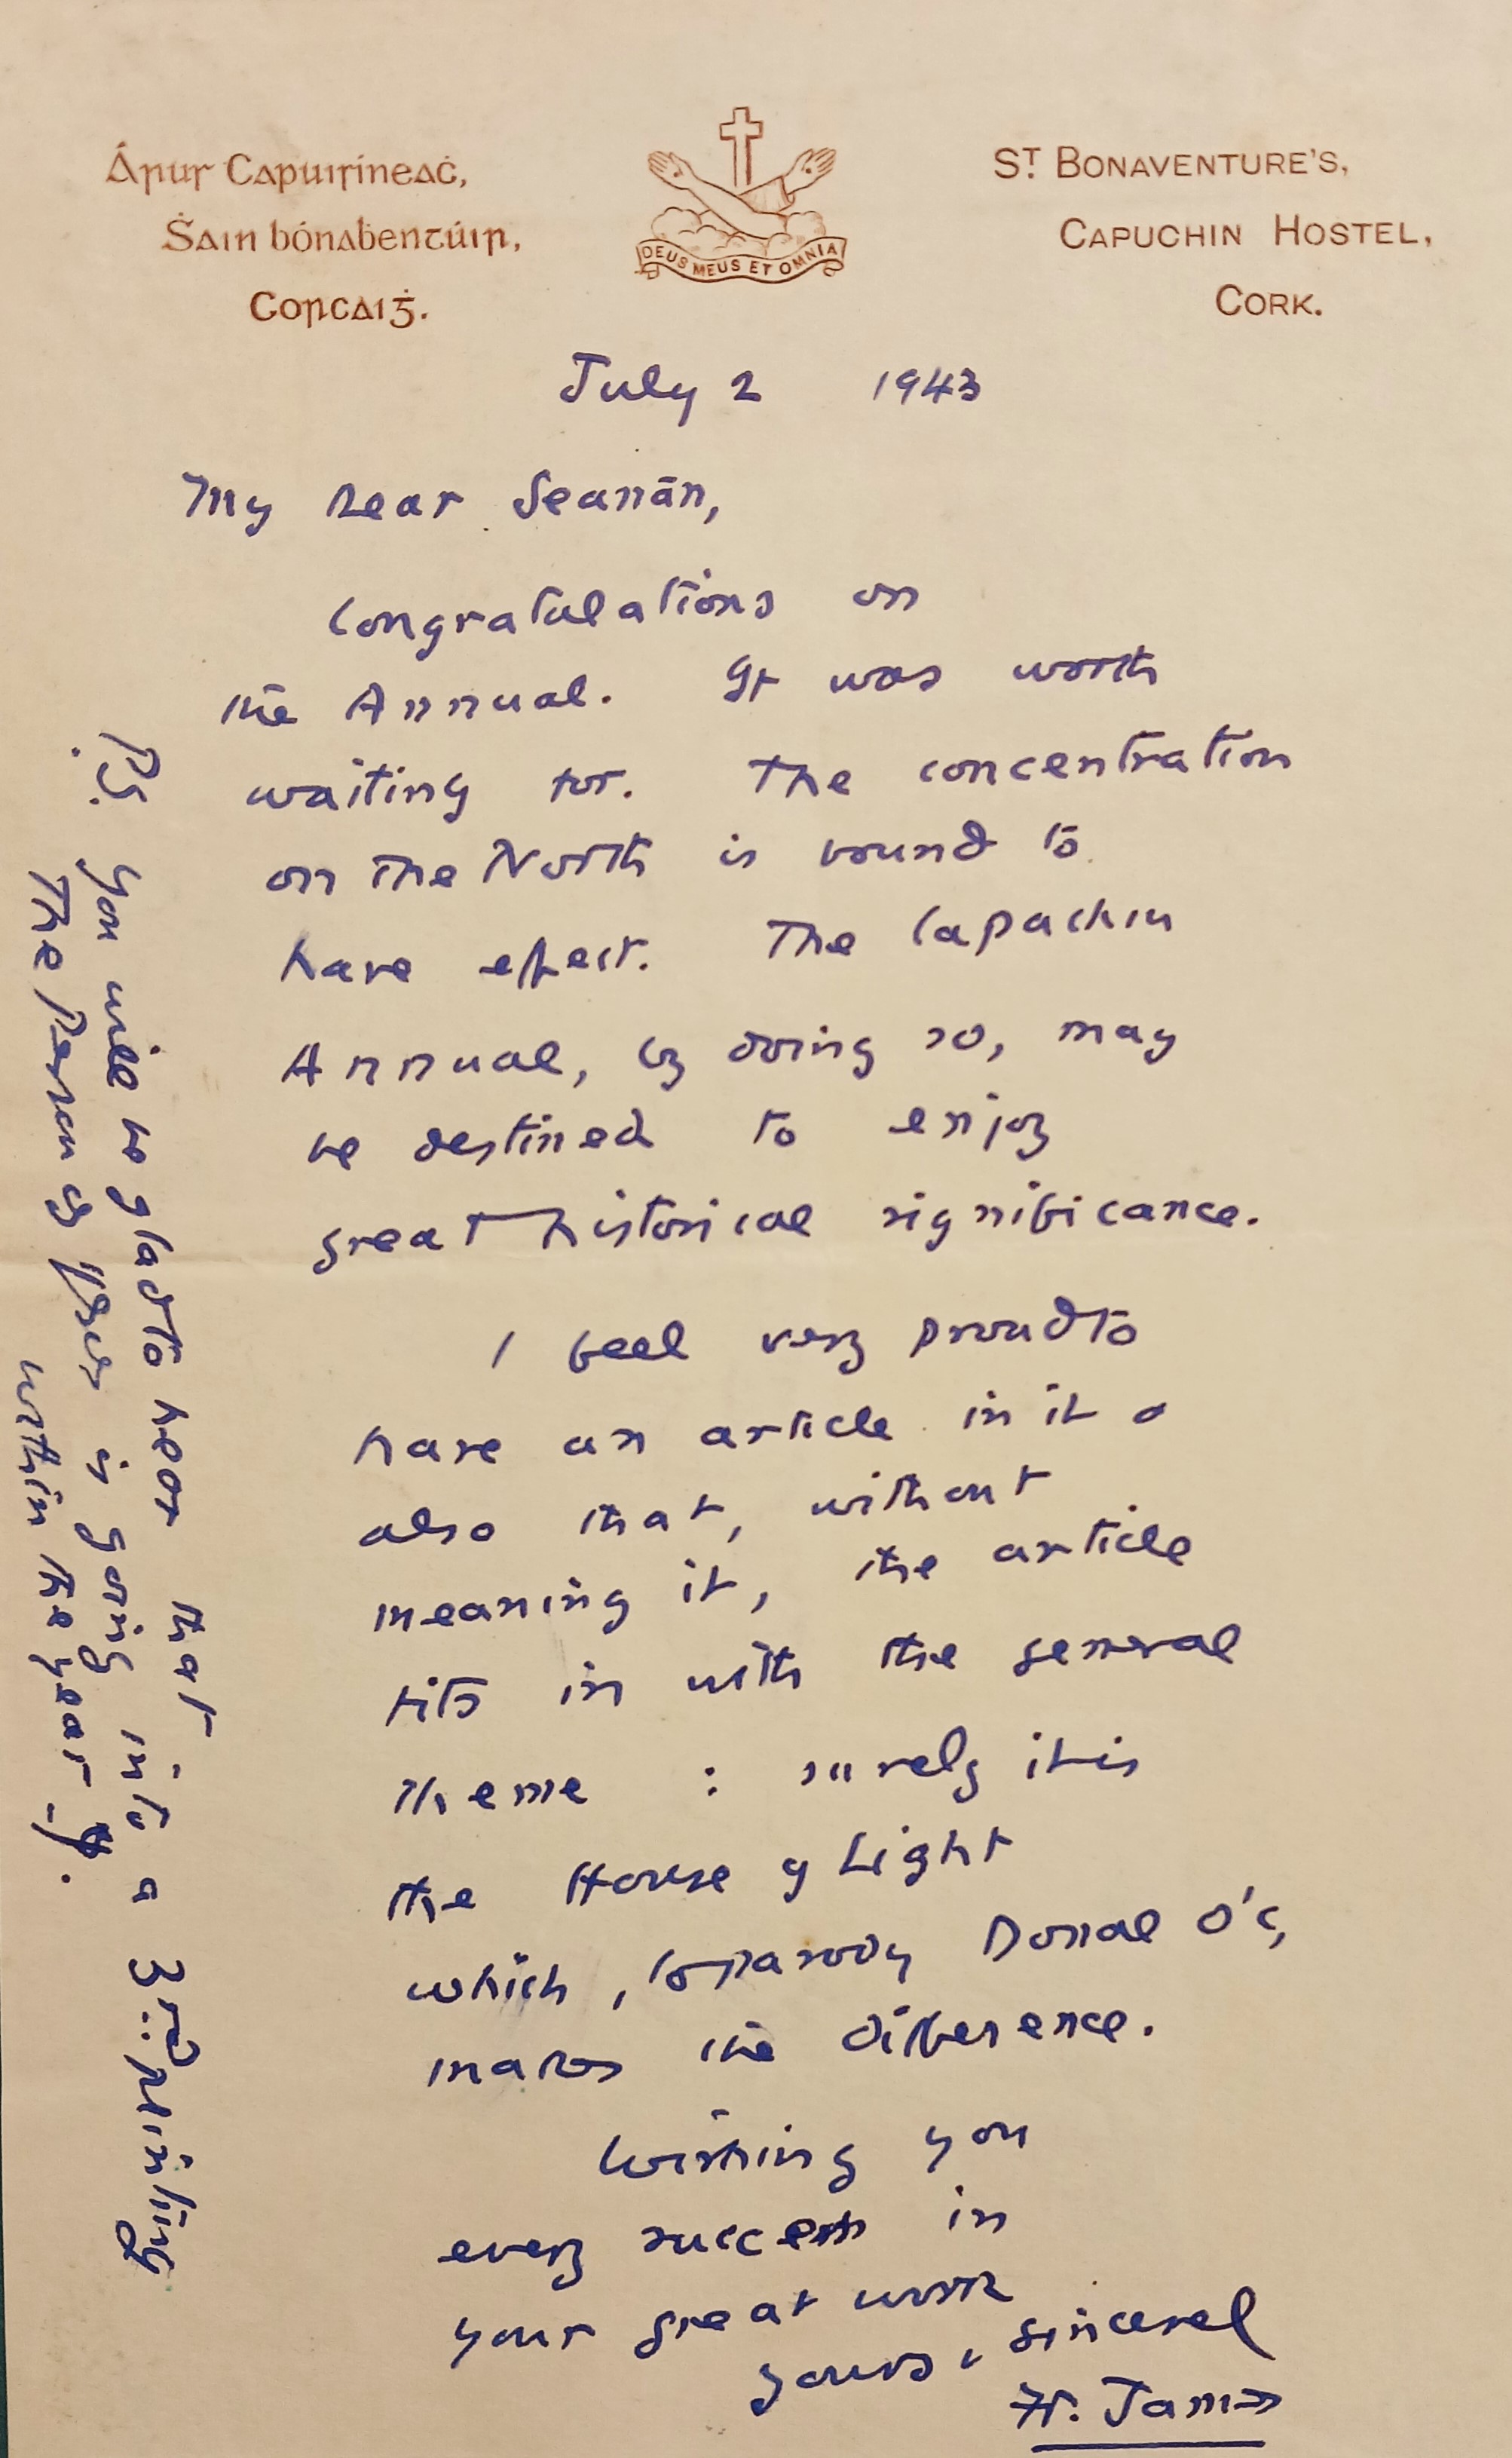 Árus Capuisíneaċ,
Ṡain bónaḃentúir,
Corcaiġ.
DEUS MEUS ET OMNIA
ST. BONAVENTURE'S,
CAPUCHIN HOSTEL,
CORK.
July 2 1943
My Dear Seanán,
Congratulations on
the Annual. It was worth
waiting for. The concentration
on the North is bound to
have effect. The Capuchin
Annual, by doing so, may
be destined to enjoy
great historical significance.
I feel very proud to
have an article in it &
also that, without
meaning it, the article
fits in with the general
theme : surely it is
the House of Light
which, to parody Donal O'C,
makes the difference.
Wishing you
every success in
your great work
yours sincerel
Fr. James
P.S. You will be glad to hear that
The Person of Jesus is going into a 3rd printing
within the year